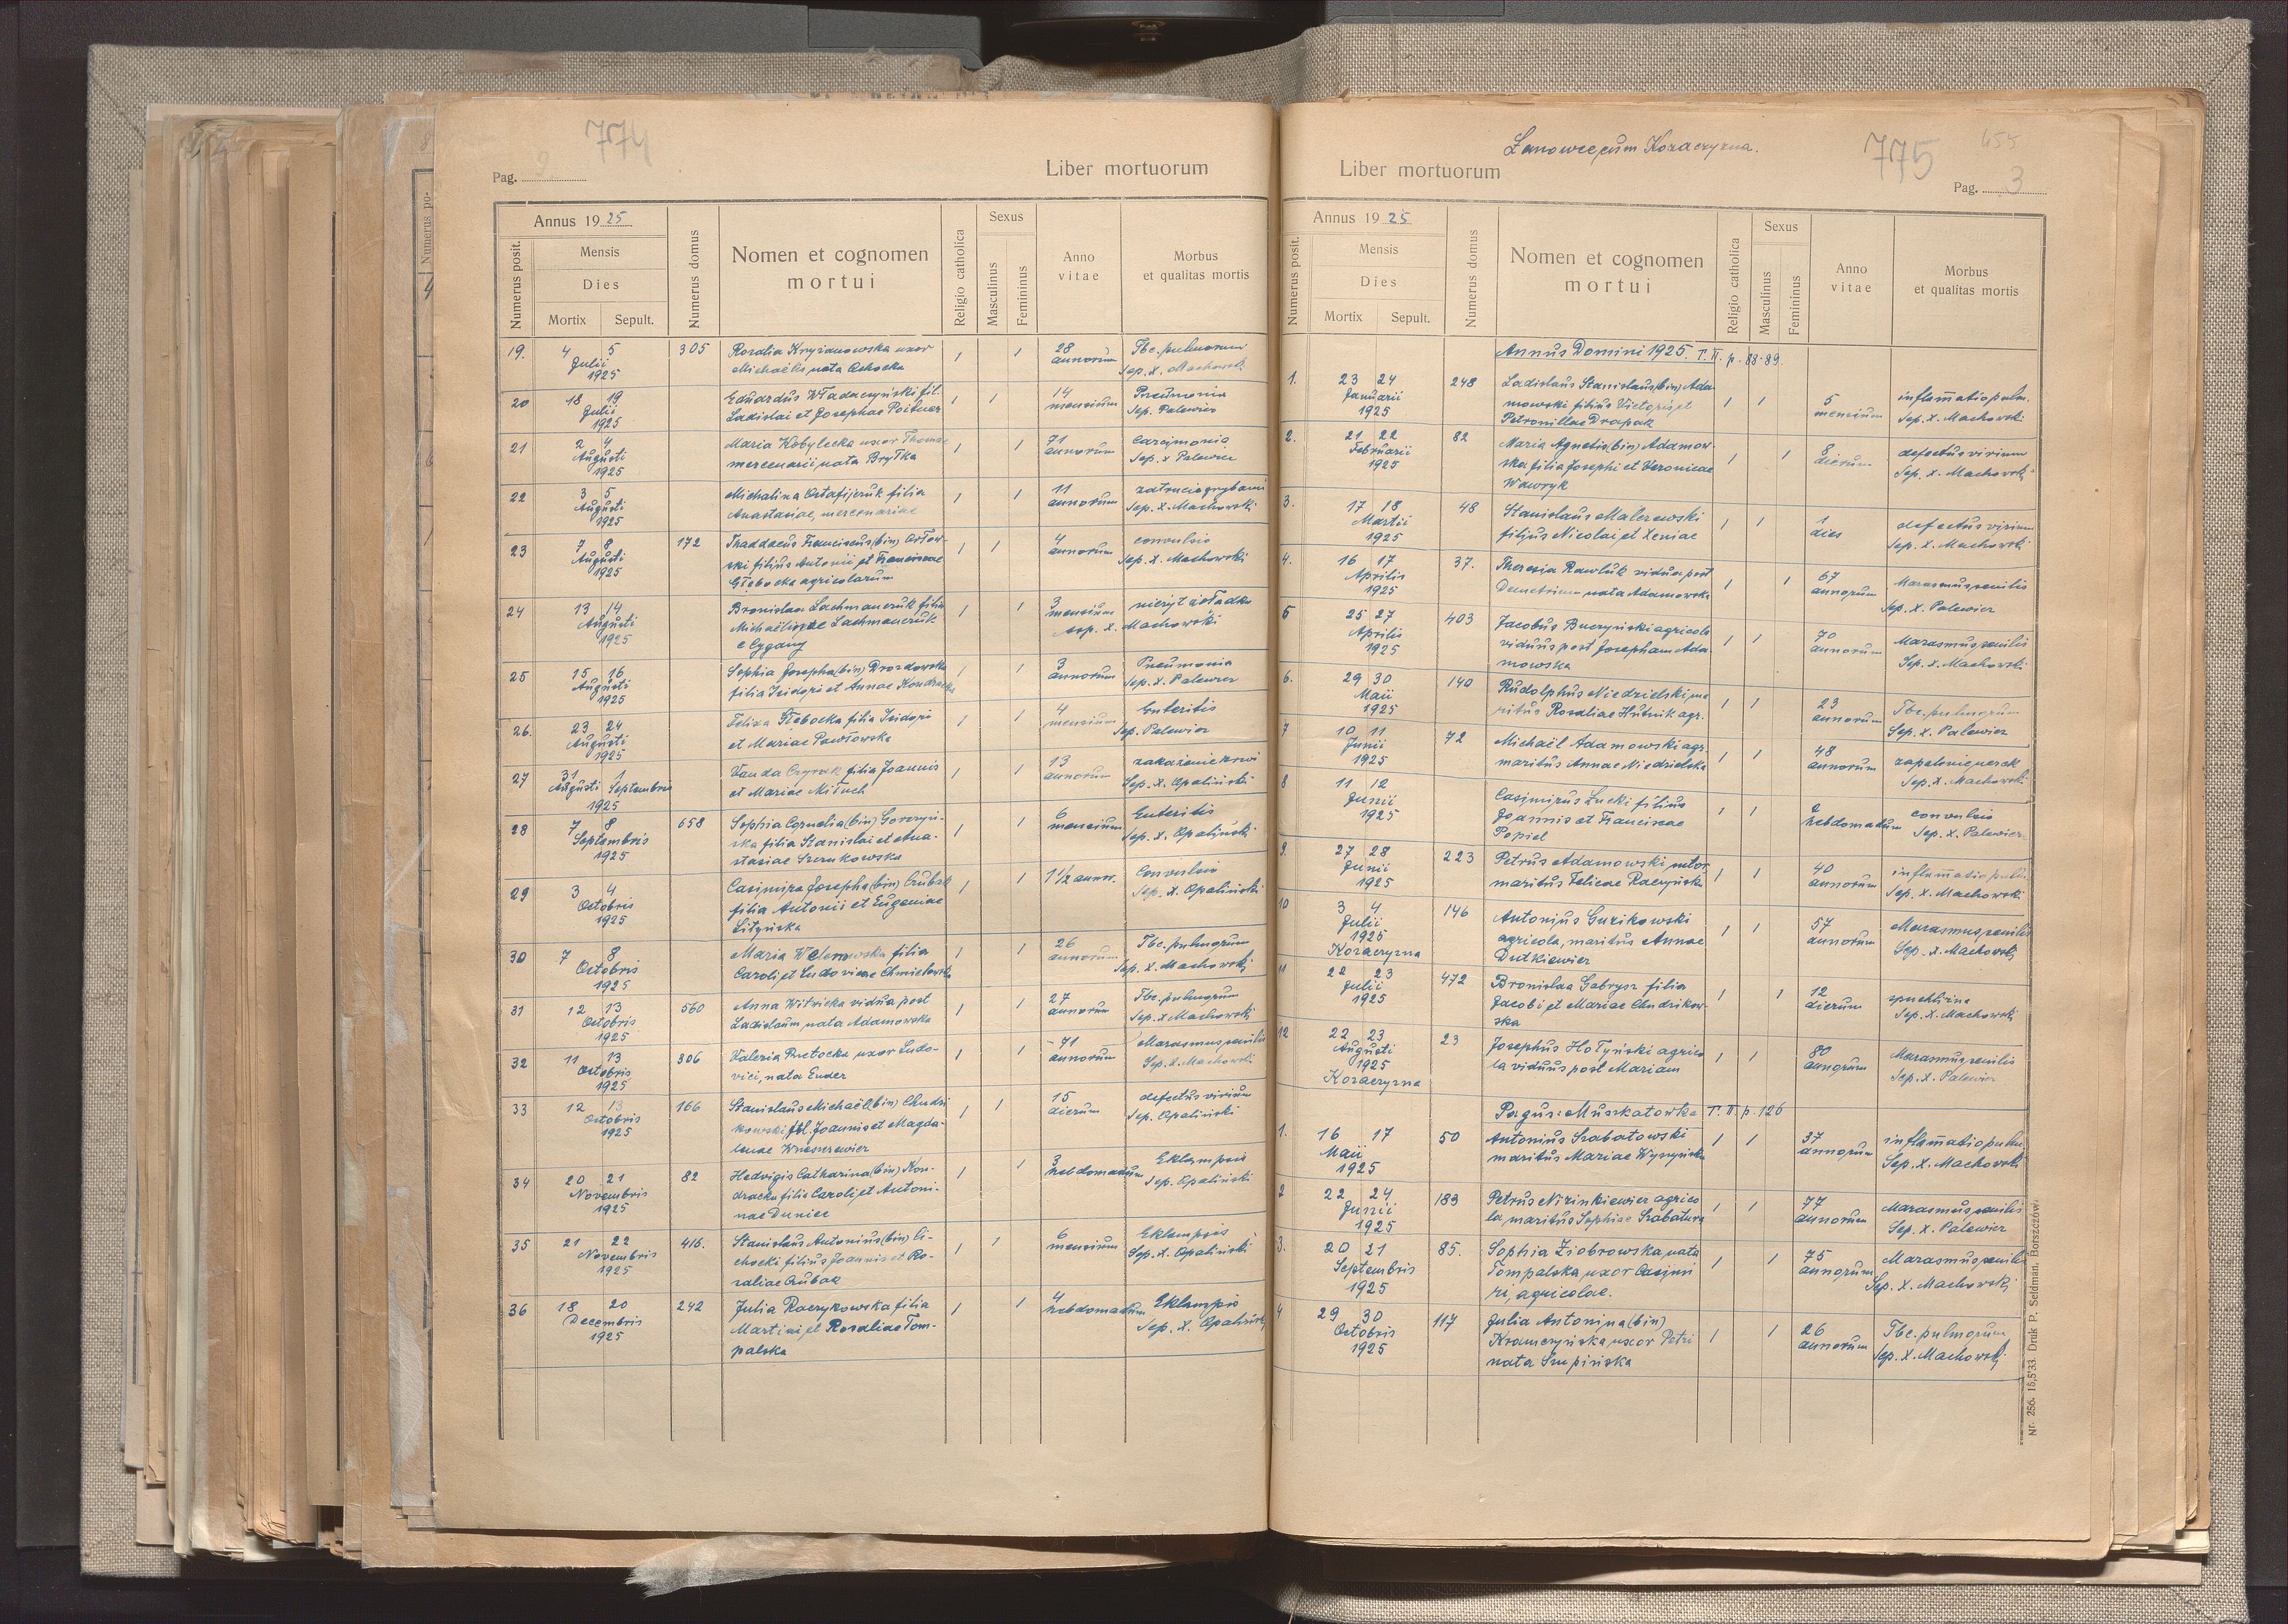 774
Pag. 2
Liber mortuorum
Annus 1925
Numerus posit.
Mensis
Dies
Mortix Sepult.
Numerus domus
Nomen et cognomen
mortui
Religio catholica
Sexus
Masculinus
Femininus
Anno
vitae
Morbus
et qualitas mortis
19. 4 5 305 Rosalia Kryżanowska uxor 1 1 28 Tbc. pulmonum
Julii Michaëlis nata annorum Sep. X. Machowski
1925
20 18 19 Eduardus Władaczyński fil. 1 1 14 Pneumonia
Julii Ladislai et Josephae mensium Sep. Palewicz
1925
21 2 4 Maria Kobylecka uxor Thomae 1 1 71 Carcinomia
Augusti mercenarii nata Brytka annorum Sep. X Palewicz
1925
22 3 5 Michalina Ostafijczuk filia 1 1 11 zatrucie grzybami
Augusti Anastasiae, mercenariae annorum Sep. X. Machowski
1925
23 7 8 172 Thaddaeus Franciscus (bin) Ostow- 1 1 4 convulsio
Augusti ski filius Antonii et Franciscae annorum Sep. X. Machowski
1925 Głębocka agricolarum
24 13 14 Bronislaa Lachmanczuk filia 1 1 3 nieżyt żołądka
Augusti Lachmanczuk mensium Sep. X. Machowski
1925 e Cygany
25 15 16 Sophia Josepha (bin) Drozdowska 1 1 3 Pneumonia
Augusti filia Isidori et Annae Kondracka annorum Sep. X. Palewicz
1925
26. 23 24 Felixa Głębocka filia Isidori 1 1 4 Enteritis
Augusti et Mariae Pawłowska mensium Sep. Palewicz
1925
27 31 1 Vanda Czyrak filia Joannis 1 1 13 zakażenie krwi
Augusti Septembris et Mariae annorum Sep. X. Opaliński
1925
28 7 8 658 Sophia Cornelia (bin) Gorczyń- 1 1 6 Enteritis
Septembris ska filia Stanislai et Ana- mensium Sep. X. Opaliński
1925 stasiae Szczukowska
29 3 4 Casimira Josepha (bin) Czubak 1 1 1 1/2 annor. Convulsio
Octobris filia Antonii et Eugeniae Sep. X. Opaliński
1925 Lityńska
30 7 8 Maria filia 1 1 26 Tbc. pulmonum
Octobris Caroli et Ludovicae Chmielowska annorum Sep. X. Machowski
1925
31 12 13 560 Anna Witwicka vidua post 1 1 27 Tbc. pulmonum
Octobris Ladislaum, nata Adamowska annorum Sep. X Machowski
1925
32 11 13 306 Valeria uxor Ludo- 1 1 71 Marasmus senilis
Octobris vici, nata Ender annorum Sep. X. Machowski
1925
33 12 13 166 Stanislaus Michaël (bin) Chudzi 1 1 15 defectus virium
Octobris kowski, fil. Joannis et Magda- dierum Sep. Opaliński
1925 lenae
34 20 21 82 Hedvigis Catharina (bin) Kon- 1 1 3 Eklampsis
Novembris dracka filia Caroli et Antoni- hebdomadum Sep. Opaliński
1925 nae Duniec
35 21 22 416. Stanislaus Antonius (bin) Ci- 1 1 6 Eklampsis
Novembris chocki filius Joannis et Ro- mensium Sep. X. Opaliński
1925 saliae Czubak
36 18 20 242 Julia Raczykowska filia 1 1 4 Eklampsis
Decembris Martini et Rosaliae Tom- hebdomadum Sep. X. Opaliński
1925 palska
Lanowce, cum Kozaczyzna.
775
455
Liber mortuorum
Pag. 3
Annus 1925
Numerus posit.
Mensis
Dies
Mortix Sepult.
Numerus domus
Nomen et cognomen
mortui
Religio catholica
Sexus
Masculinus
Femininus
Anno
vitae
Morbus
et qualitas mortis
Annus Domini 1925. T. II. p. 88-89.
1. 23 24 248 Ladislaus Stanislaus (bin) Ada- 1 1 5 inflammatio pulm.
Januarii mowski filius Victoris et mensium Sep. X. Machowski
1925 Petronillae Drapak
2. 21 22 82 Maria Agnetis (bin) Adamow- 1 1 8 defectus virium
Februarii ska filia Josephi et Veronicae dierum Sep. X. Machowski
1925 Wawryk
3. 17 18 48 Stanislaus Malczewski 1 1 1 defectus virium
Martii filius Nicolai et Xeniae dies Sep. X. Machowski
1925
4. 16 17 37. Theresia Rawluk vidua post 1 1 67 Marasmus senilis
Aprilis Demetrium nata Adamowska annorum Sep. X. Palewicz
1925
5 25 27 403 Jacobus Buczyński agricola 1 1 70 Marasmus senilis
Aprilis viduus post Josepham Ada- annorum Sep. X. Machowski
1925 mowska
6. 29 30 140 Rudolphus Niedzielski, ma 1 1 23 Tbc. pulmonum
Maii ritus Rosaliae Hutnik agr. annorum Sep. X. Palewicz
1925
7 10 11 72 Michaël Adamowski agr. 1 1 48 zapalenie nerek
Junii maritus Annae Niedzielska annorum Sep. X. Machowski
1925
8 11 12 Casimirus Łucki filius 1 1 2 convulsio
Junii Joannis et Franciscae hebdomadum Sep. X. Palewicz
1925 Popiel
9. 27 28 223 Petrus Adamowski 1 1 40 inflammatio pulm.
Junii maritus Felicae Raczyńska annorum Sep. X. Machowski
1925
10 3 4 146 Antonius Guzikowski 1 1 57 Marasmus senilis
Julii agricola, maritus Annae annorum Sep. X. Machowski
1925 Dutkiewicz
Kozaczyzna
11 22 23 472 Bronislaa Gabrysz filia 1 1 12 spuchlizna
Julii Jacobi et Mariae Chudzikow- dierum Sep. X. Machowski
1925 ska
12 22 23 23 Josephus Hołyński agrico 1 1 80 Marasmus senilis
Augusti la viduus post Mariam annorum Sep. X. Palewicz
1925
Kozaczyzna
Pagus: Muszkatowka T. II p. 126
1. 16 17 50 Antonius Szabatowski 1 1 37 inflammatio pulm.
Maii maritus Mariae annorum Sep. X. Machowski
1925
2 22 24 183 Petrus Nizinkiewicz agrico 1 1 77 Marasmus senilis
Junii la maritus Sophiae Szabatura annorum Sep. X. Palewicz
1925
3. 20 21 85. Sophia Ziobrowska, nata 1 1 75 Marasmus senilis
Septembris Tompalska, uxor Casimi annorum Sep. X. Machowski
1925 ri, agricolae.
4 29 30 117 Julia Antonina (bin) 1 1 26 Tbc. pulmonum
Octobris Kramczyńska uxor Petri annorum Sep. X. Machowski
1925 nata
Nr. 256. 15,5'33. Druk P. Seidman, Borszczów.